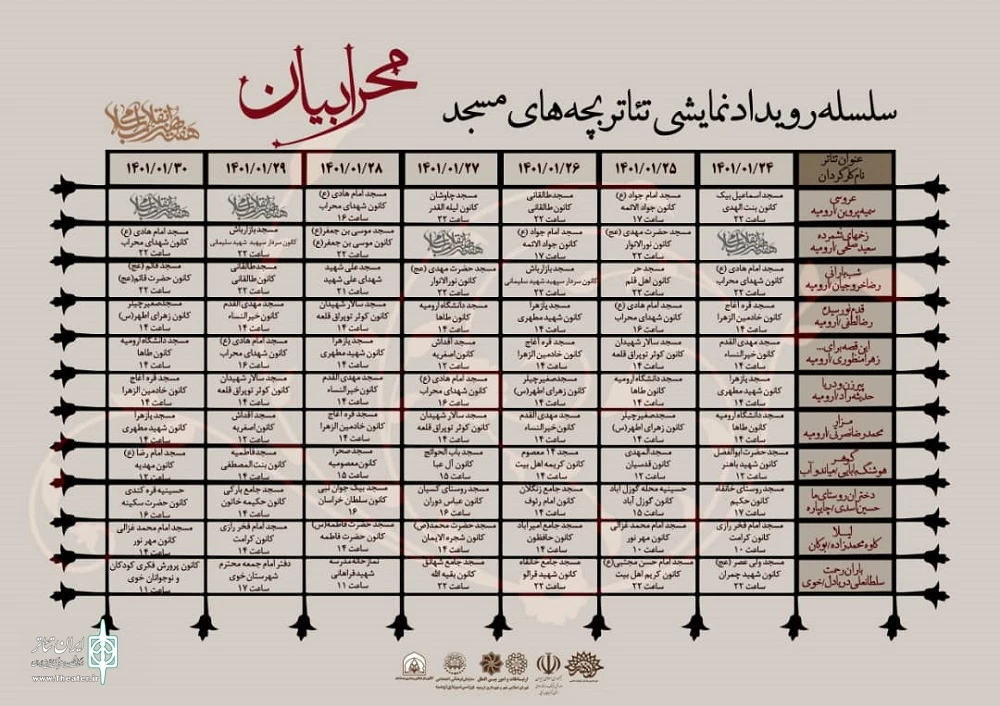 محرابیان
سلسله رویداد نمایشی تئاتر بچه‌های مسجد
هفته هنر انقلاب اسلامی
عنوان تئاتر
نام کارگردان
۱۴۰۱/۰۱/۲۴ ۱۴۰۱/۰۱/۲۵ ۱۴۰۱/۰۱/۲۶ ۱۴۰۱/۰۱/۲۷ ۱۴۰۱/۰۱/۲۸ ۱۴۰۱/۰۱/۲۹ ۱۴۰۱/۰۱/۳۰
عروسی
سمیه پروین/ارومیه
مسجد اسماعیل بیک
کانون بنت الهدی
ساعت ۲۲
مسجد امام جواد (ع)
کانون جواد الائمه
ساعت ۱۷
مسجد طالقانی
کانون طالقانی
ساعت ۲۲
مسجد چاوشان
کانون لیله القدر
ساعت ۲۲
مسجد امام هادی (ع)
کانون شهدای محراب
ساعت ۱۶
هفته هنر انقلاب اسلامی
هفته هنر انقلاب اسلامی
زخمهای نشمرده
سعید سلحی/ارومیه
هفته هنر انقلاب اسلامی
مسجد حضرت مهدی (عج)
کانون نورالانوار
ساعت ۲۲
مسجد امام جواد (ع)
کانون جواد الائمه
ساعت ۱۷
هفته هنر انقلاب اسلامی
مسجد موسی بن جعفر(ع)
کانون موسی بن جعفر(ع)
ساعت ۲۲
مسجد بازارباش
کانون سردار سپهبد شهید سلیمانی
ساعت ۲۲
مسجد امام هادی (ع)
کانون شهدای محراب
ساعت ۲۲
شب بارانی
رضا خروجیان/ارومیه
مسجد امام هادی (ع)
کانون شهدای محراب
ساعت ۲۲
مسجد حر
کانون اهل قلم
ساعت ۲۲
مسجد بازارباش
کانون سردار سپهبد شهید سلیمانی
ساعت ۲۲
مسجد حضرت مهدی (عج)
کانون نورالانوار
ساعت ۲۲
مسجد علی شهید
شهدای علی شهید
ساعت ۲۱
مسجد طالقانی
کانون طالقانی
ساعت ۲۲
مسجد قائم (عج)
کانون حضرت قائم(عج)
ساعت ۲۲
قدم نورسیده
رضا لطفی/ارومیه
مسجد قره آغاج
کانون خادمین الزهرا
ساعت ۱۴
مسجد امام هادی (ع)
کانون شهدای محراب
ساعت ۱۶
مسجد یازهرا
کانون شهید مطهری
ساعت ۱۴
مسجد دانشگاه ارومیه
کانون طاها
ساعت ۱۴
مسجد سالار شهیدان
کانون کوثر توپراق قلعه
ساعت ۱۴
مسجد مهدی القدم
کانون خیرالنساء
ساعت ۱۴
مسجد صغیرچیلر
کانون زهرای اطهر(س)
ساعت ۱۴
این قصه برای...
زهرا منظوری/ارومیه
مسجد مهدی القدم
کانون خیرالنساء
ساعت ۱۴
مسجد سالار شهیدان
کانون کوثر توپراق قلعه
ساعت ۱۴
مسجد قره آغاج
کانون خادمین الزهرا
ساعت ۱۴
مسجد آقداش
کانون اصغریه
ساعت ۱۲
مسجد یازهرا
کانون شهید مطهری
ساعت ۱۴
مسجد امام هادی (ع)
کانون شهدای محراب
ساعت ۱۶
مسجد دانشگاه ارومیه
کانون طاها
ساعت ۱۴
پیرزن و دریا
حدیثه راد/ارومیه
مسجد یازهرا
کانون شهید مطهری
ساعت ۱۴
مسجد دانشگاه ارومیه
کانون طاها
ساعت ۱۴
مسجد صغیرچیلر
کانون زهرای اطهر(س)
ساعت ۱۴
مسجد امام هادی (ع)
کانون شهدای محراب
ساعت ۱۶
مسجد مهدی القدم
کانون خیرالنساء
ساعت ۱۴
مسجد سالار شهیدان
کانون کوثر توپراق قلعه
ساعت ۱۴
مسجد قره آغاج
کانون خادمین الزهرا
ساعت ۱۴
مزار
محمدرضا نصرتی/ارومیه
مسجد دانشگاه ارومیه
کانون طاها
ساعت ۱۴
مسجد صغیرچیلر
کانون زهرای اطهر(س)
ساعت ۱۴
مسجد مهدی القدم
کانون خیرالنساء
ساعت ۱۴
مسجد سالار شهیدان
کانون کوثر توپراق قلعه
ساعت ۱۴
مسجد قره آغاج
کانون خادمین الزهرا
ساعت ۱۴
مسجد آقداش
کانون اصغریه
ساعت ۱۲
مسجد یازهرا
کانون شهید مطهری
ساعت ۱۴
گوهر
هوشنگ بابایی/میاندوآب
مسجد حضرت ابوالفضل
کانون شهید باهنر
ساعت ۱۴
مسجد المهدی
کانون قدسیان
ساعت ۱۵
مسجد ۱۴ معصوم
کانون کریمه اهل بیت
ساعت ۱۴
مسجد باب الحوائج
کانون آل عبا
ساعت ۱۵
مسجد صحرا
کانون معصومیه
ساعت ۱۵
مسجد فاطمیه
کانون بنت المصطفی
ساعت ۱۴
مسجد امام رضا (ع)
کانون مهدیه
ساعت ۱۲
دختران روستای ما
حسین اسدی/چایپاره
مسجد روستای خانقاه
کانون حکیم
ساعت ۱۷
حسینیه محله گوزل آباد
کانون گوزل آباد
ساعت ۱۵
مسجد جامع زنگلان
کانون امام رئوف
ساعت ۱۴
مسجد روستای گسیان
کانون عباس دوران
ساعت ۱۶
مسجد بیک جوان نبی
کانون سلطان خراسان
۱۶
مسجد جامع بارکی
کانون حکیمه خاتون
ساعت ۱۴
حسینیه قره کندی
کانون حضرت سکینه
ساعت ۱۶
لیلا
کاوه محمدزاده/بوکان
مسجد امام فخر رازی
کانون کرامت
ساعت ۱۰
مسجد امام محمد غزالی
کانون مهر نور
ساعت ۱۰
مسجد جامع امیرآباد
کانون حافظون
ساعت ۱۴
مسجد حضرت محمد(ص)
کانون شجره الایمان
ساعت ۱۴
مسجد حضرت فاطمه(س)
کانون حضرت فاطمه
ساعت ۱۴
مسجد امام فخر رازی
کانون کرامت
ساعت ۱۴
مسجد امام محمد غزالی
کانون مهر نور
ساعت ۱۴
باران رحمت
سلطانعلی دریادل/خوی
مسجد ولی عصر (عج)
کانون شهید چمران
ساعت ۲۲
مسجد امام حسن مجتبی(ع)
کانون کریم اهل بیت
ساعت ۲۲
مسجد جامع خانقاه
کانون شهید قرالو
ساعت ۲۲
مسجد جامع شهانق
کانون بقیه الله
ساعت ۲۲
نمازخانه مدرسه
شهید فراهانی
ساعت ۱۱
دفتر امام جمعه محترم
شهرستان خوی
ساعت ۱۷
کانون پرورش فکری کودکان
و نوجوانان خوی
ساعت ۱۱
ایران تئاتر
www.Theater.ir